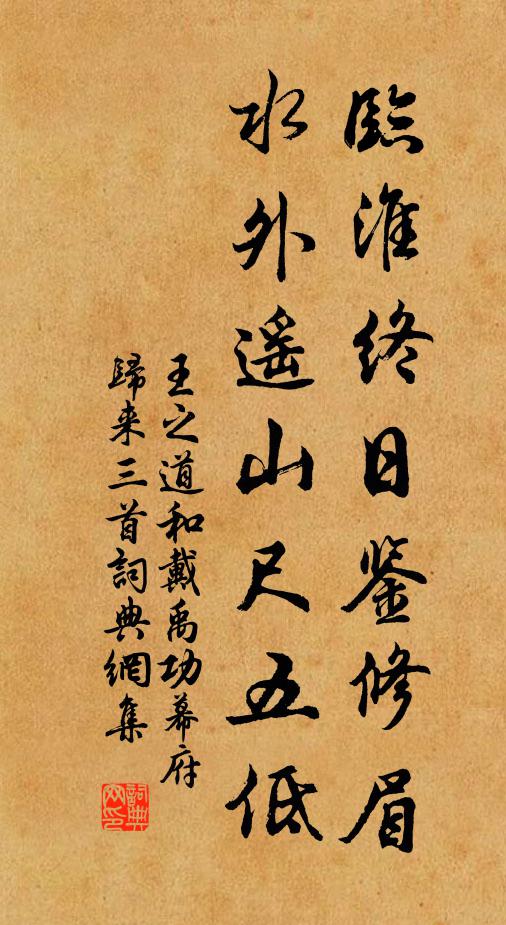 臨淮終日鉴修眉
水外遥山尺五低
王之道和戴禹功幕府
歸来三首詞典網集
詞典网印